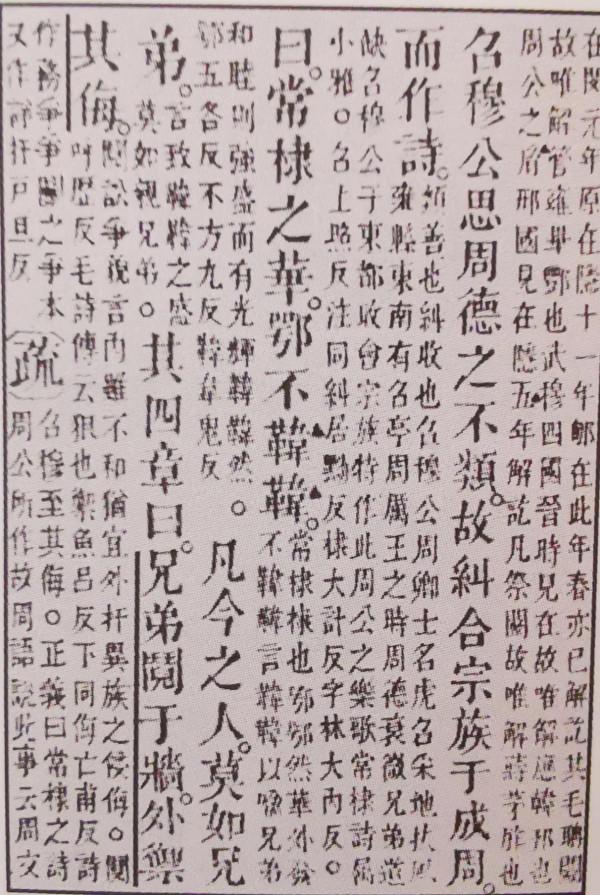 在閔元年原在隱十一年郇在此年春亦已解訖其毛聃闕
故唯解管雍畢酆也武穆四國晉時見在故唯解應韓邘也
周公之胤邢國見在隱五年解訖凡祭闕故唯解蔣茅胙也
召穆公思周德之不類。故糾合宗族于成周。
而作詩。
類善也糾收也召穆公周卿士名虎召采地扶風
雍縣東南有召亭周厲王之時周德衰微兄弟道
缺召穆公于東都收會宗族特作此周公之樂歌常棣詩屬
小雅。召上照反注同糾居黝反棣大計反字林大內反。
曰。常棣之華。鄂不韡韡。
常棣棣也鄂鄂然華外發
不韡韡言韡韡以喻兄弟
和睦則強盛而有光輝韡韡然
鄂五各反不方九反韡韋鬼反
。凡今之人。莫如兄
弟。
言致韡韡之盛
莫如親兄弟。
其四章曰。兄弟鬩于牆。外禦
其侮。
鬩訟爭貌言內雖不和猶宜外扞異族之侵侮。鬩
呼歷反毛詩傳云狠也禦魚呂反下同侮亡甫反詩
作務爭爭鬭之爭本
又作諍扞戶旦反
疏
召穆至其侮。正義曰常棣之詩
周公所作故周語說此事云周文